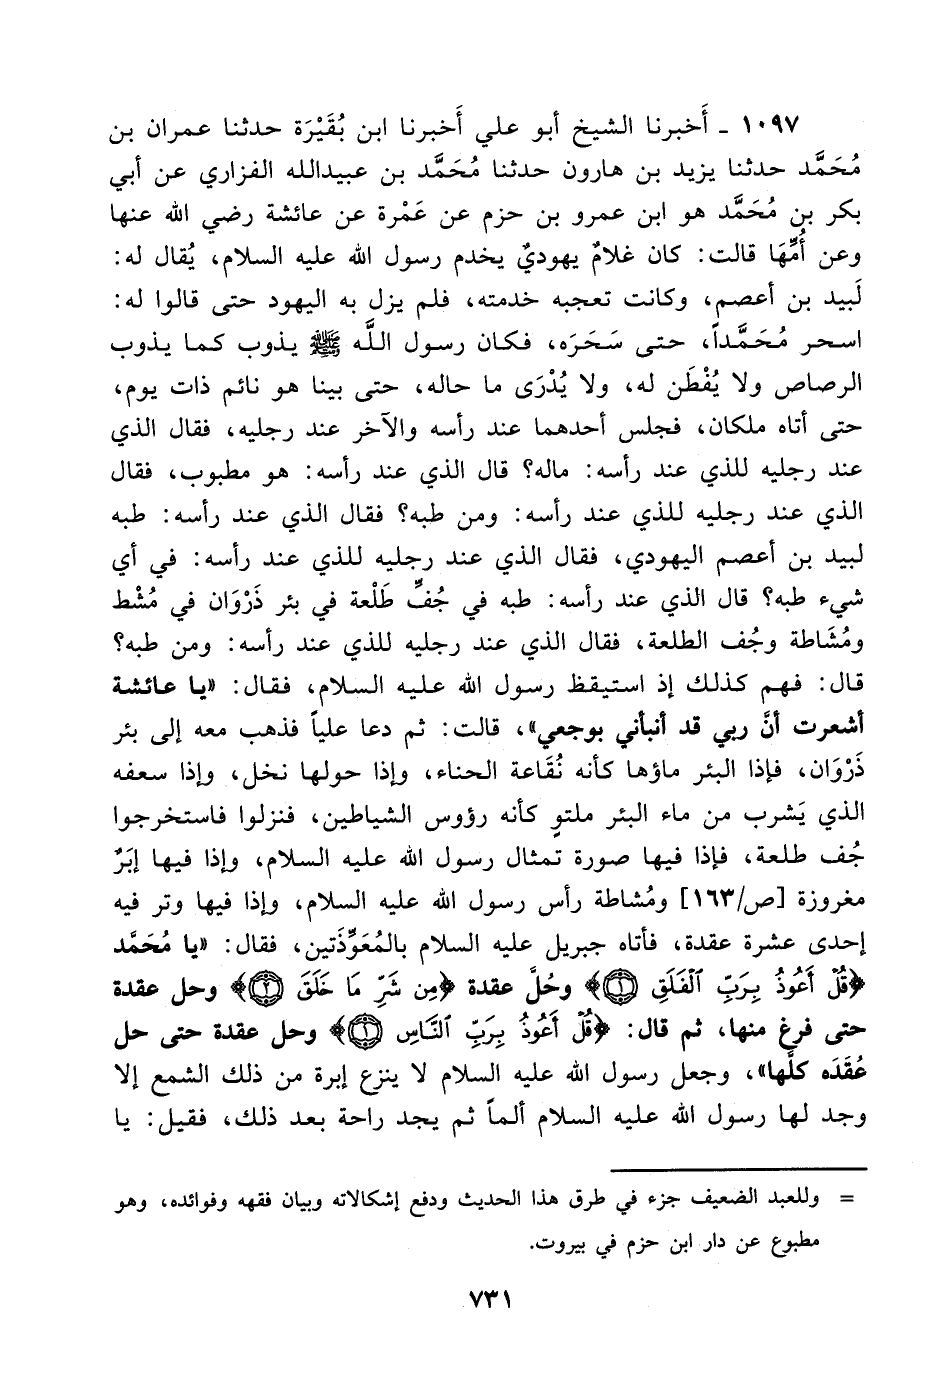 ١٠٩٧ ـ أَخبرنا الشيخ أبو علي أَخبرنا ابن بُقَيْرَة حدثنا عمران بن
مُحَمَّد حدثنا يزيد بن هارون حدثنا مُحَمَّد بن عبيدالله الفزاري عن أبي
بكر بن مُحَمَّد هو ابن عمرو بن حزم عن عَمْرة عن عائشة رضي الله عنها
وعن أُمِّهَا قالت: كان غلامٌ يهوديٌ يخدم رسول الله عليه السلام، يُقال له:
لَبيد بن أعصم، وكانت تعجبه خدمته، فلم يزل به اليهود حتى قالوا له:
اسحر مُحَمَّداً، حتى سَحَرَه، فكان رسول اللَّه ﷺ يذوب كما يذوب
الرصاص ولا يُفْطَن له، ولا يُدْرَى ما حاله، حتى بينا هو نائم ذات يوم،
حتى أتاه ملكان، فجلس أحدهما عند رأسه والآخر عند رجليه، فقال الذي
عند رجليه للذي عند رأسه: ماله؟ قال الذي عند رأسه: هو مطبوب، فقال
الذي عند رجليه للذي عند رأسه: ومن طبه؟ فقال الذي عند رأسه: طبه
لبيد بن أعصم اليهودي، فقال الذي عند رجليه للذي عند رأسه: في أي
شيء طبه؟ قال الذي عند رأسه: طبه في جُفٍّ طَلْعة في بئر ذَرْوَان في مُشْط
ومُشَاطة وجُف الطلعة، فقال الذي عند رجليه للذي عند رأسه: ومن طبه؟
قال: فهم كذلك إذ استيقظ رسول الله عليه السلام، فقال: «يا عائشة
أشعرت أنَّ ربي قد أنبأني بوجعي»، قالت: ثم دعا علياً فذهب معه إلى بئر
ذَرْوَان، فإذا البئر ماؤها كأنه نُقَاعة الحناء، وإذا حولها نخل، وإذا سعفه
الذي يَشرب من ماء البئر ملتوٍ كأنه رؤوس الشياطين، فنزلوا فاستخرجوا
جُف طلعة، فإذا فيها صورة تمثال رسول الله عليه السلام، وإذا فيها إبَرٌ
مغروزة [ص/١٦٣] ومُشاطة رأس رسول الله عليه السلام، وإذا فيها وتر فيه
إحدى عشرة عقدة، فأتاه جبريل عليه السلام بالمُعَوِّذَتين، فقال: «يا مُحَمَّد
﴿قُلْ أَعُوذُ بِرَبِّ ٱلْفَلَقِ ۝١﴾ وحُلَّ عقدة ﴿مِن شَرِّ مَا خَلَقَ ۝٢﴾ وحل عقدة
حتى فرغ منها، ثم قال: ﴿قُلْ أَعُوذُ بِرَبِّ ٱلنَّاسِ ۝١﴾ وحل عقدة حتى حل
عُقَدَه كلَّها»، وجعل رسول الله عليه السلام لا ينزع إبرة من ذلك الشمع إلا
وجد لها رسول الله عليه السلام ألماً ثم يجد راحة بعد ذلك، فقيل: يا
= وللعبد الضعيف جزء في طرق هذا الحديث ودفع إشكالاته وبيان فقهه وفوائده، وهو
مطبوع عن دار ابن حزم في بيروت.
٧٣١